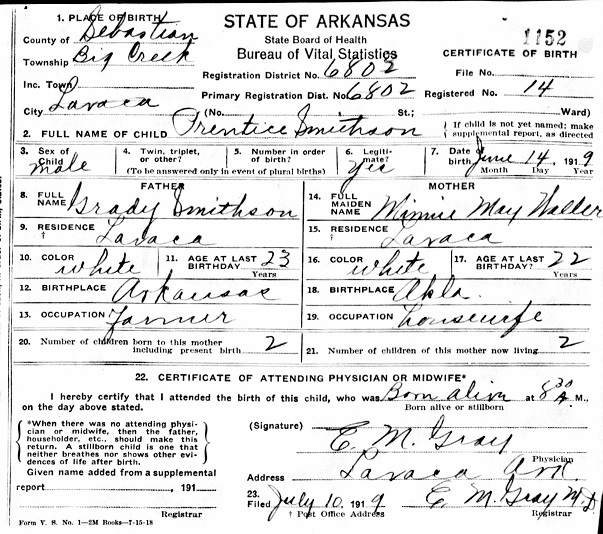 1. PLACE OF BIRTH
STATE OF ARKANSAS
County of Sebastian
State Board of Health
1152
Township Big Creek
Bureau of Vital Statistics
CERTIFICATE OF BIRTH
Inc. Town
Registration District No. 6802
File No.
City Lavaca
Primary Registration Dist. No. 6802
Registered No. 14
(No. St.; Ward)
2. FULL NAME OF CHILD Prentice Smithson
{ If child is not yet named; make supplemental report, as directed
3. Sex of Child male
4. Twin, triplet, or other?
5. Number in order of birth?
(To be answered only in event of plural births)
6. Legitimate? Yes
7. Date birth June 14, 1919
Month Day Year
FATHER
MOTHER
8. FULL NAME Grady Smithson
14. FULL MAIDEN NAME Minnie May Waller
9. RESIDENCE † Lavaca
15. RESIDENCE † Lavaca
10. COLOR white
11. AGE AT LAST BIRTHDAY 23 Years
16. COLOR white
17. AGE AT LAST BIRTHDAY? 22 Years
12. BIRTHPLACE Arkansas
18. BIRTHPLACE Okla.
13. OCCUPATION Farmer
19. OCCUPATION housewife
20. Number of children born to this mother including present birth 2
21. Number of children of this mother now living 2
22. CERTIFICATE OF ATTENDING PHYSICIAN OR MIDWIFE*
I hereby certify that I attended the birth of this child, who was Born alive at 8 30 A. M.,
on the day above stated.
Born alive or stillborn
{ *When there was no attending physi-
cian or midwife, then the father,
householder, etc., should make this
return. A stillborn child is one that
neither breathes nor shows other evi-
dences of life after birth. }
(Signature) E. M. Gray
Physician
Given name added from a supplemental
Address Lavaca Ark.
report , 191
23.
Filed July 10, 1919 E. M. Gray M.D.
Registrar
† Post Office Address
Registrar
Form V. S. No. 1—2M Books—7-15-18